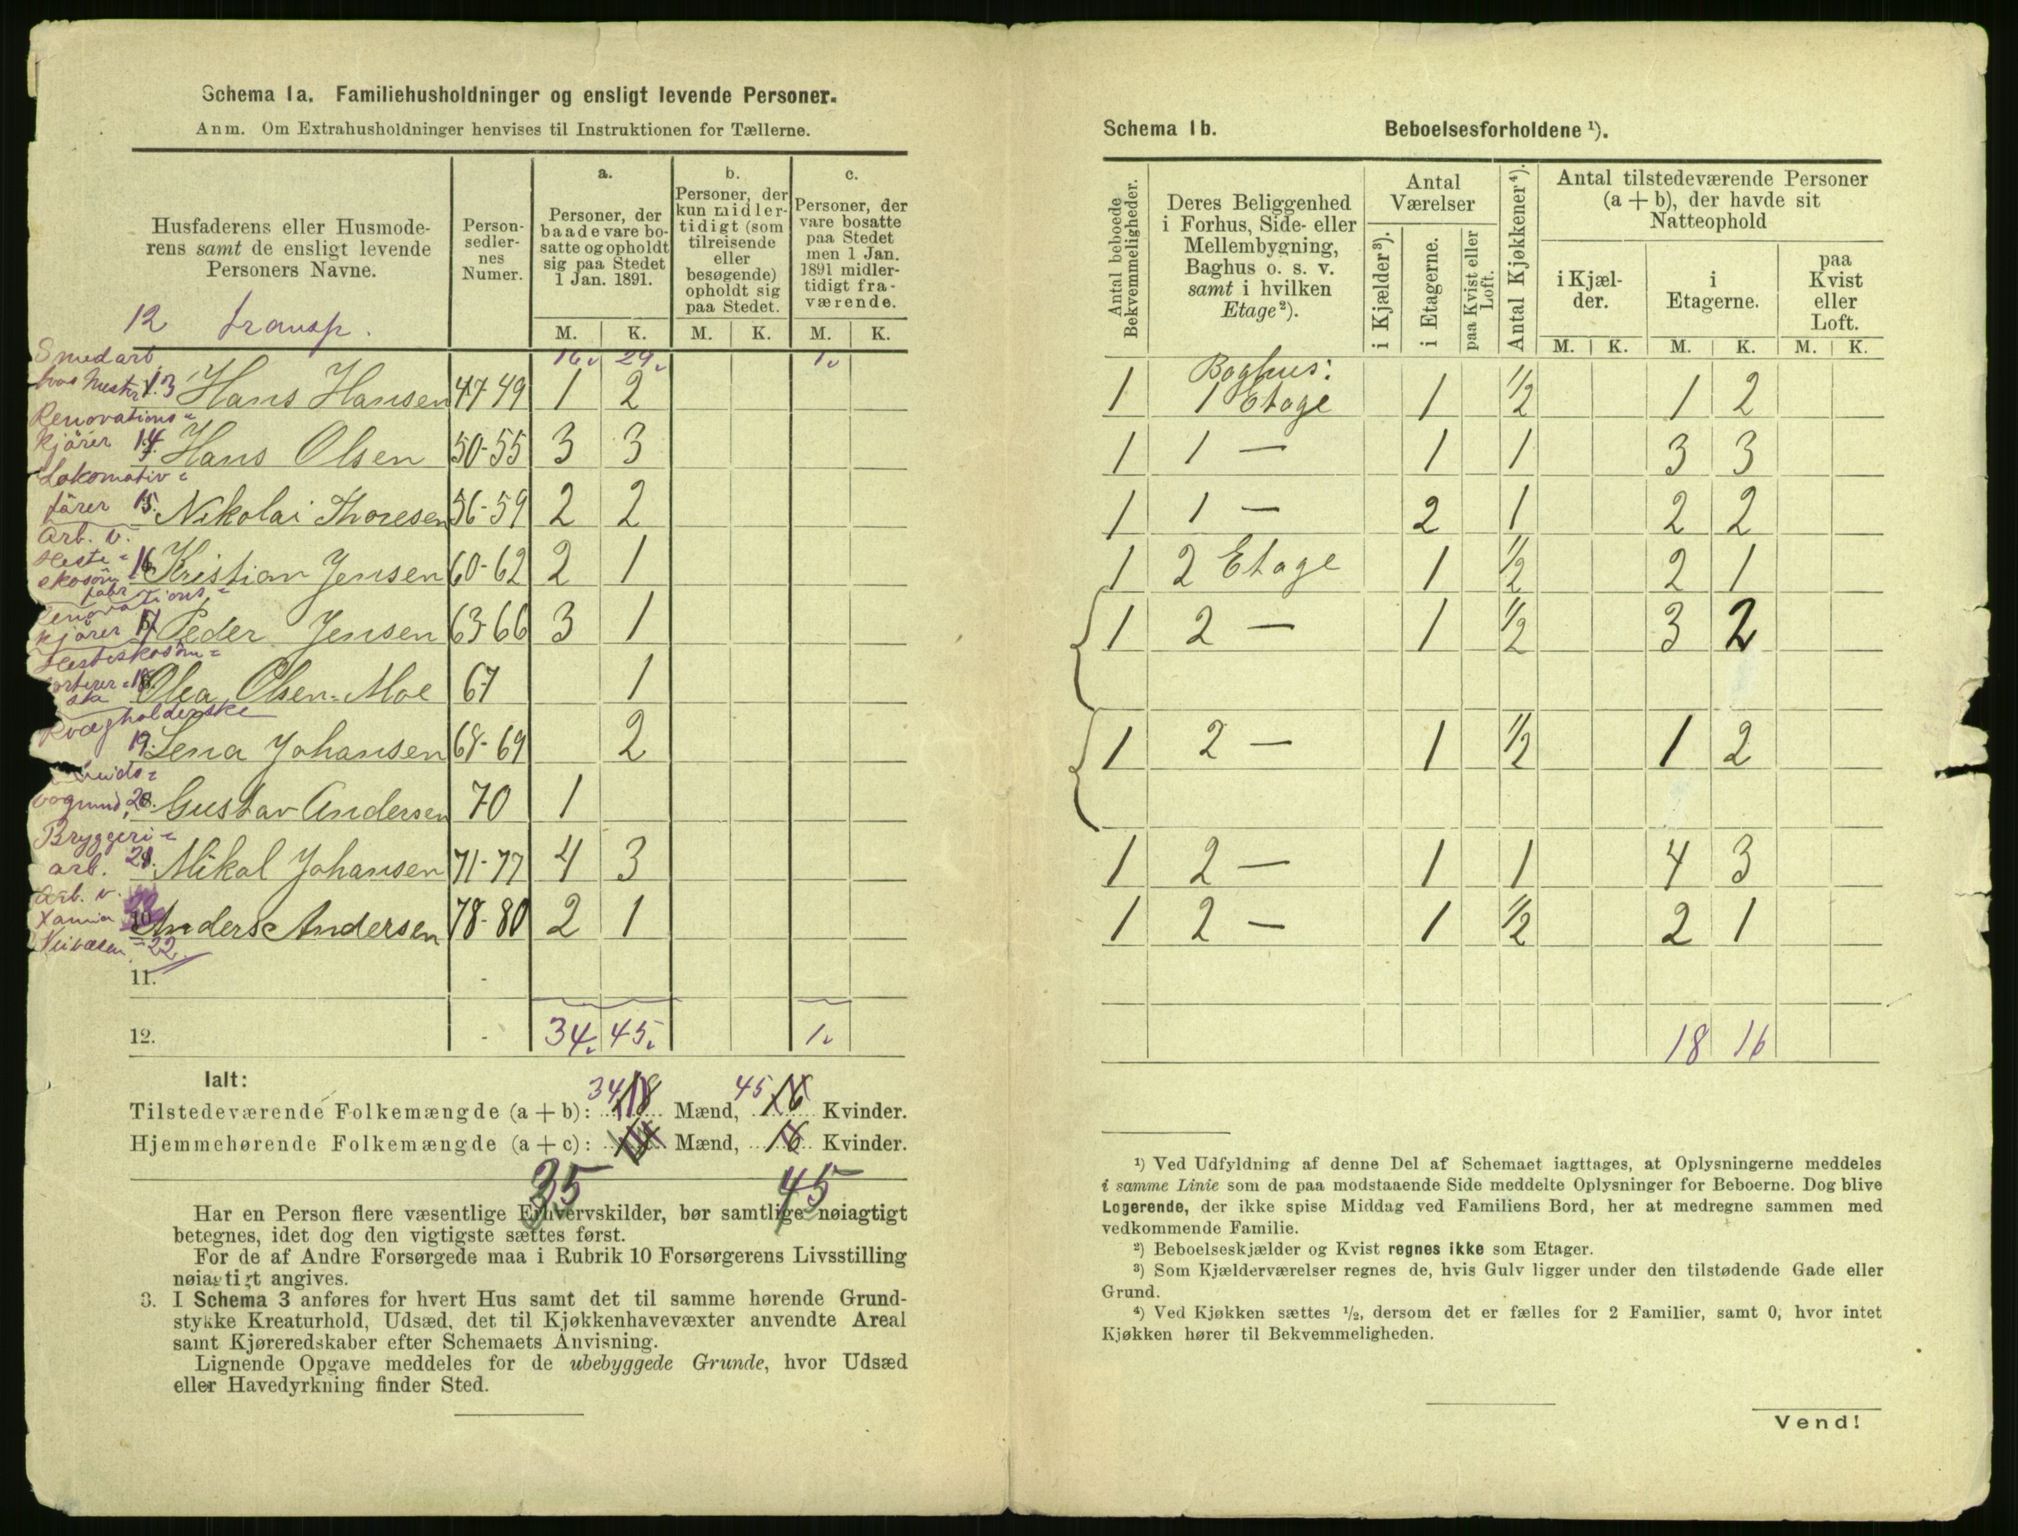 Schema 1a. Familiehusholdninger og ensligt levende Personer.
Anm. Om Extrahusholdninger henvises til Instruktionen for Tællerne.
Husfaderens eller Husmoderens samt de ensligt levende Personers Navne.
Personsedlernes Numer.
a.
Personer, der baade vare bosatte og opholdt sig paa Stedet 1 Jan. 1891.
b.
Personer, der kun midlertidigt (som tilreisende eller besøgende) opholdt sig paa Stedet.
c.
Personer, der vare bosatte paa Stedet men 1 Jan. 1891 midlertidigt fraværende.
M. K. M. K. M. K.
12 transp. 16. 29. 1.
Smedarb.
13 Hans Hansen 47-49 1 2
Renovations-
kjörer 14 Hans Olsen 50-55 3 3
Lokomotiv-
förer 15. Nikolai Thoresen 56-59 2 2
Arb. v.
Heste-
skosöm- 16 Kristian Jensen 60-62 2 1
fabr
Renovations-
kjörer 17 Peder Jensen 63-66 3 1
Hesteskosöm-
18. Olea Olsen-Moe 67 1
Kvægholderske
19. Lena Johansen 68-69 2
20. Gustav Andersen 70 1
Bryggeri-
arb. 21. Mikal Johansen 71-77 4 3
Arb. v.
Anders Andersen 78-80 2 1
=22.
11.
12. 34. 45. 1.
Ialt:
Tilstedeværende Folkemængde (a + b): 34 18 Mænd, 45 16 Kvinder.
Hjemmehørende Folkemængde (a + c): Mænd, 16 Kvinder.
35 45
Har en Person flere væsentlige Erhvervskilder, bør samtlige nøiagtigt
betegnes, idet dog den vigtigste sættes først.
For de af Andre Forsørgede maa i Rubrik 10 Forsørgerens Livsstilling
nøiagtigt angives.
3. I Schema 3 anføres for hvert Hus samt det til samme hørende Grund-
stykke Kreaturhold, Udsæd, det til Kjøkkenhavevæxter anvendte Areal
samt Kjøreredskaber efter Schemaets Anvisning.
Lignende Opgave meddeles for de ubebyggede Grunde, hvor Udsæd
eller Havedyrkning finder Sted.
Schema 1b. Beboelsesforholdene ¹).
Antal beboede Bekvemmeligheder.
Deres Beliggenhed i Forhus, Side- eller Mellembygning, Baghus o. s. v. samt i hvilken Etage²).
Antal Værelser
i Kjælder³).
i Etagerne.
paa Kvist eller Loft.
Antal Kjøkkener⁴).
Antal tilstedeværende Personer (a + b), der havde sit Natteophold
i Kjælder.
i Etagerne.
paa Kvist eller Loft.
M. K. M. K. M. K.
Baghus:
1 1 Etage 1 1/2 1 2
1 1 — 1 1 3 3
1 1 — 2 1 2 2
1 2 Etage 1 1/2 2 1
1 2 — 1 1/2 3 2
1 2 — 1 1/2 1 2
1 2 — 1 1 4 3
1 2 — 1 1/2 2 1
18 16
¹) Ved Udfyldning af denne Del af Schemaet iagttages, at Oplysningerne meddeles
i samme Linie som de paa modstaaende Side meddelte Oplysninger for Beboerne. Dog blive
Logerende, der ikke spise Middag ved Familiens Bord, her at medregne sammen med
vedkommende Familie.
²) Beboelseskjælder og Kvist regnes ikke som Etager.
³) Som Kjælderværelser regnes de, hvis Gulv ligger under den tilstødende Gade eller
Grund.
⁴) Ved Kjøkken sættes ¹/₂, dersom det er fælles for 2 Familier, samt 0, hvor intet
Kjøkken hører til Bekvemmeligheden.
Vend!